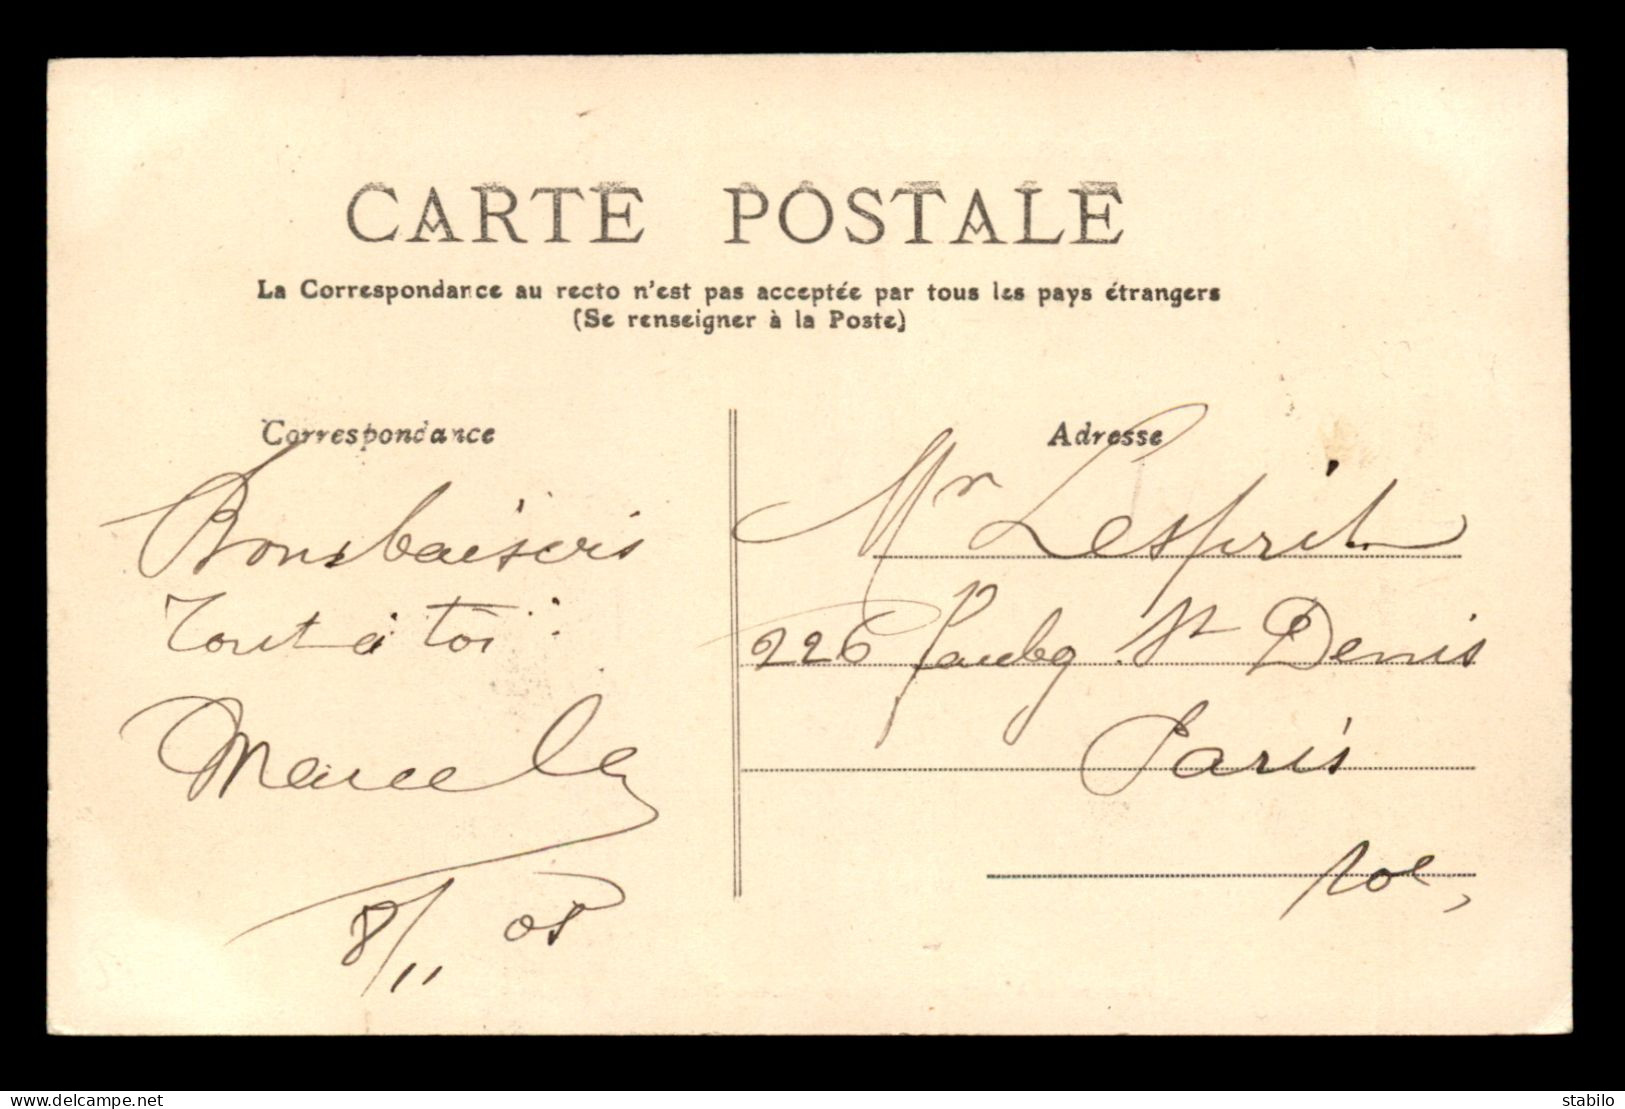 CARTE POSTALE
La Correspondance au recto n'est pas acceptée par tous les pays étrangers
(Se renseigner à la Poste)
Correspondance
Bons baisers
Tout à toi
Marcel
8/11 05
Adresse
Mr Lesprit
226 Faubg St Denis
Paris
10e,
stabilo